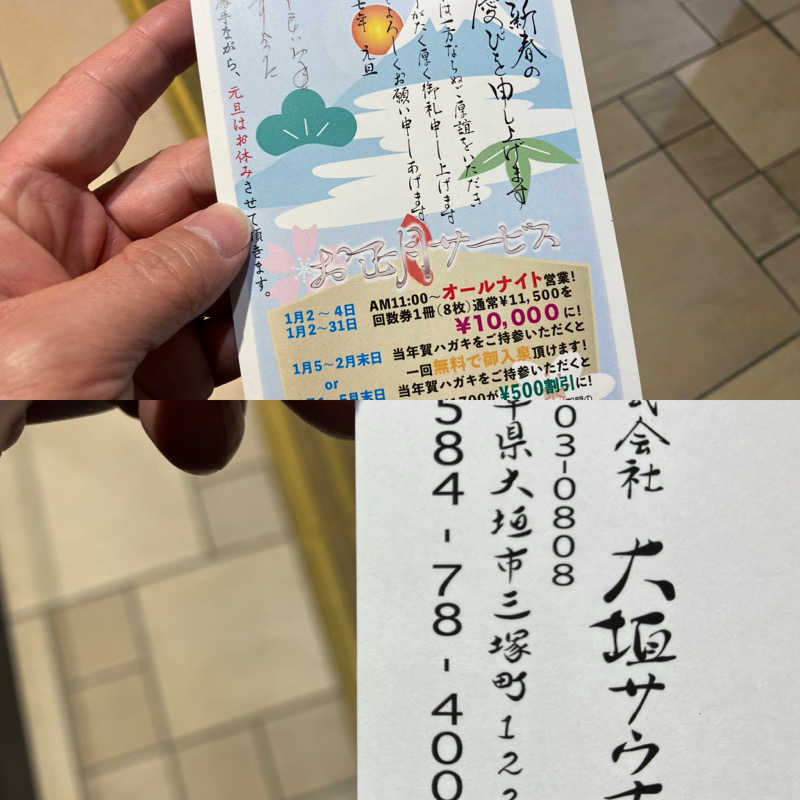 新春の
慶びを申し上げます
は一方ならぬご厚誼をいただき
がたく厚く御礼申し上げます
よろしくお願い申しあげます
七年 元旦
ながら、元旦はお休みさせて頂きます。
お正月サービス
1月2～4日 AM11:00～オールナイト営業!
1月2～31日 回数券1冊(8枚)通常¥11,500を
¥10,000に!
1月5～2月末日 当年賀ハガキをご持参いただくと
一回無料で御入泉頂けます!
or
5月末日 当年賀ハガキをご持参いただくと
1700が¥500割引に!
式会社 大垣サウナ
03-0808
県大垣市三塚町122
584-78-400